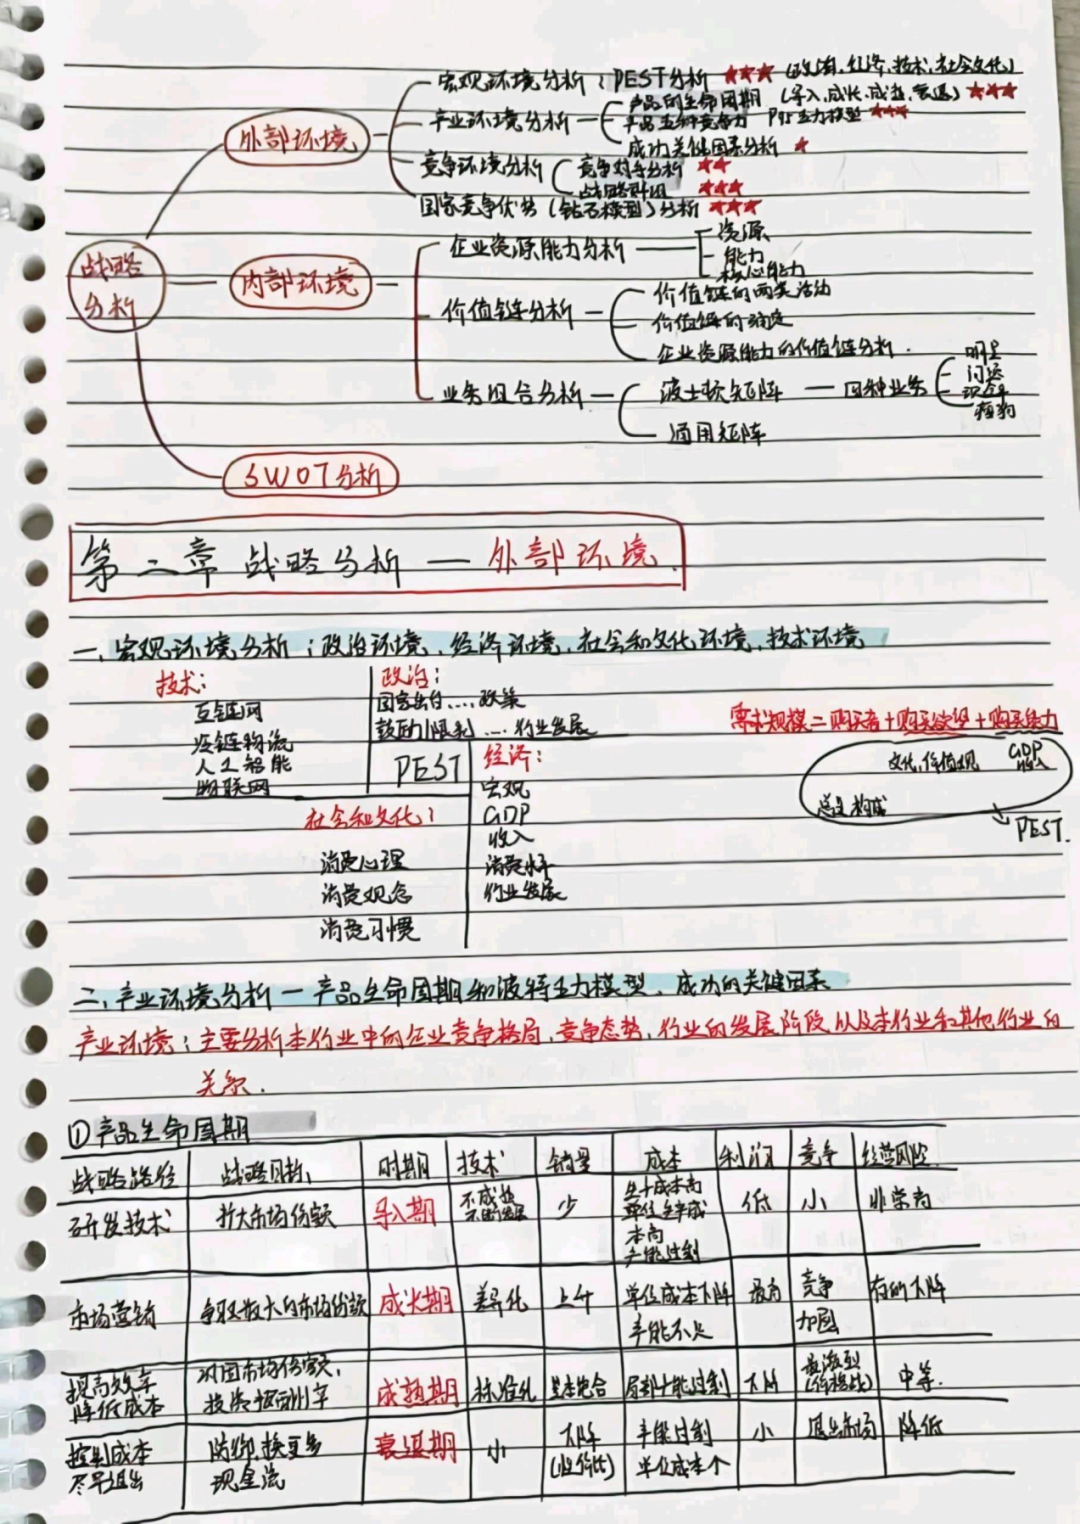 宏观环境分析：PEST分析 ★★★ (政治、经济、技术、社会文化)
产品的生命周期 (导入、成长、成熟、衰退) ★★★
外部环境 产业环境分析 产品五种竞争力 五力模型 ★★★
成功关键因素分析 ★
竞争环境分析 竞争对手分析 ★★
战略群组 ★★★
国家竞争优势(钻石模型)分析 ★★★
战略分析
内部环境
企业资源能力分析 资源
能力
核心能力
价值链分析 价值链的两类活动
价值链的确定
企业资源能力的价值链分析.
业务组合分析 波士顿矩阵 — 四种业务 明星
问题
现金牛
瘦狗
通用矩阵
SWOT分析
第二章 战略分析 — 外部环境.
一、宏观环境分析：政治环境、经济环境、社会和文化环境、技术环境
技术：
互联网
冷链物流
人工智能
物联网
政治：
国家出台....政策
鼓励/限制....行业发展
PEST
经济：
宏观
GDP
收入
消费水平
行业发展
社会和文化：
消费心理
消费观念
消费习惯
需求规模=购买者+购买欲望+购买能力
文化、价值观 GDP
收入
总量构成
PEST.
二、产业环境分析—产品生命周期和波特五力模型、成功的关键因素
产业环境：主要分析本行业中的企业竞争格局、竞争态势、行业的发展阶段以及本行业和其他行业的
关系.
①产品生命周期
战略路径 战略目标 时期 技术 销量 成本 利润 竞争 经营风险
研发技术 扩大市场份额 导入期 不成熟 少 生产成本高 低 小 非常高
单位生产成
本高
产能过剩
市场营销 争取最大的市场份额 成长期 差异化 上升 单位成本下降 最高 竞争 有所下降
产能不足 加剧
提高效率 巩固市场份额、 成熟期 标准化 基本饱合 局部产能过剩 下降 最激烈 中等.
降低成本 投资报酬率 (价格战)
控制成本 防御、换更多 衰退期 小 下降 产能过剩 小 退出市场 降低
尽早退出 现金流 (性价比) 单位成本个